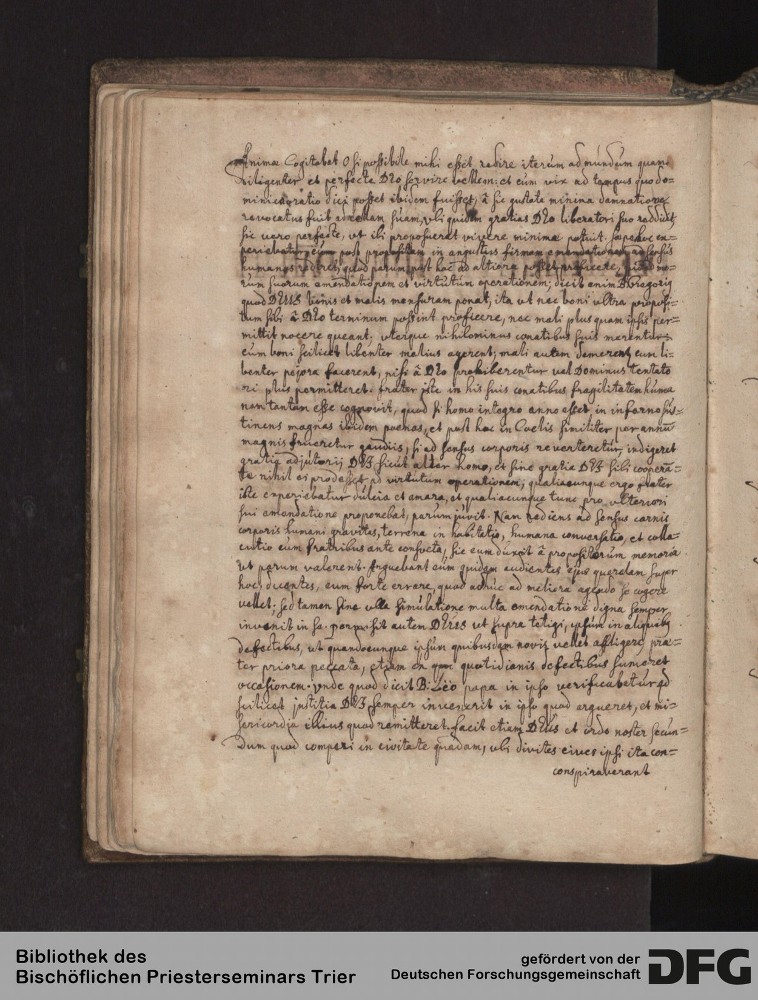 Animae Cogitabat O si possibile mihi esset redire iterum ad mundum quam
diligenter et perfecte Dno servire vellem: et cum vix ad tempus quo do=
minica oratio dici posset ibidem fuisset, à sic gustata minima damnatione
revocatus fuit ad cellam suam, ubi quidem gratias Dno liberatori suo reddidit
sic vero perfecte, ut ibi proposuerat vivere minime potuit. Saepe hoc ex=
periebatur, post in angustiis firmam emendationem ad sensus
humanos rediret, quod parum post hoc ad altiora posset proficere, mo=
rum suorum emendationem et virtutum operationem; dicit enim B. Gregorius
quod DEUS bonis et malis mensuram ponat, ita ut nec boni ultra proposi=
tum sibi à Dno terminum possint proficere, nec mali plus quam ipsis per=
mittit nocere queant; uterque nihilominus conatibus suis merentur:
cum boni scilicet libenter melius agerent; mali autem demerent, cum li=
benter pejora facerent, nisi à Dno prohiberentur vel Dominus tentato
ri plus permitteret. frater iste in his suis conatibus fragilitatem huma
nam tantam esse cognovit, quod si homo integro anno esset in inferno sus=
tinens magnas ibidem poenas, et post hoc in Coelis similiter per annu
magnis frueretur gaudiis, si ad sensus corporis reverteretur, indigeret
gratia adjutorii DEI sicut alter homo, et sine gratia DEI sibi cooperan=
te nihil ei prodesset ad virtutum operationem; qualiacunque ergo frater
iste experiebatur dulcia et amara, et qualiacunque tunc pro ulteriori
sui emendatione proponebat, parum juvit. Nam rediens ad sensus carnis
corporis humani gravitas, terrena in habitatio, humana conversatio, et collo=
cutio cum fratribus ante consueta, sic eum à propositorum memoria
ut parum valerent. Arguebant eum quidam audientes ejus querelam super
hoc, dicentes, eum forte errare, quod adhuc ad meliora agendo se cogere
vellet; sed tamen sine ulla simulatione multa emendatione digna semper
invenit in se. permisit autem DEUS ut supra tetigi, ipsum in aliquibus
defectibus, ut quandocunque ipsum quibusdam novis vellet affligere, prae=
ter priora peccata, etiam ex quotidianis defectibus sumeret
occasionem. unde quod dicit B. Leo papa in ipso verificabetur qd
scilicet justitia DEI semper invenerit in ipso quod argueret, et mi=
sericordia illius quod remitteret. facit etiam DEUS et ordo noster secun=
Dum quod comperi in civitate quadam, ubi divites cives ipsi ita con=
conspiraverant
Bibliothek des
Bischöflichen Priesterseminars Trier
gefördert von der
Deutschen Forschungsgemeinschaft
DFG